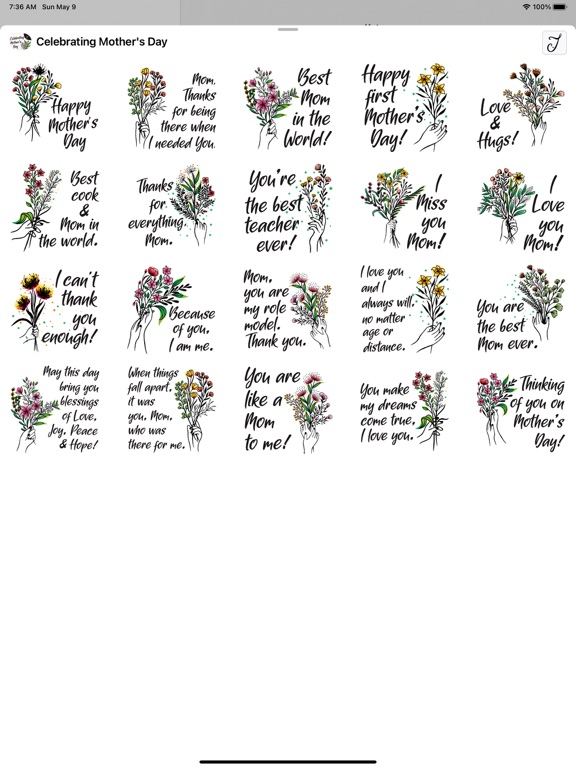 7:36 AM Sun May 9
100%
Celebrating Mother's Day
Happy
Mother's
Day
Mom,
Thanks
for being
there when
I needed You.
Best
Mom
in the
World!
Happy
first
Mother's
Day!
Love
&
Hugs!
Best
cook
&
Mom in
the world.
Thanks
for
everything,
Mom.
You're
the best
teacher
ever!
I
Miss
you
Mom!
I
Love
you
Mom!
I can't
thank
you
enough!
Because
of you,
I am me.
Mom,
you are
my role
model.
Thank you.
I love you
and I
always will,
no matter
age or
distance.
You are
the best
Mom ever.
May this day
bring you
blessings
of Love,
Joy, Peace
& Hope!
When things
fall apart,
it was
you, Mom,
who was
there for me.
You are
like a
Mom
to me!
You make
my dreams
come true,
I love you.
Thinking
of you on
Mother's
Day!